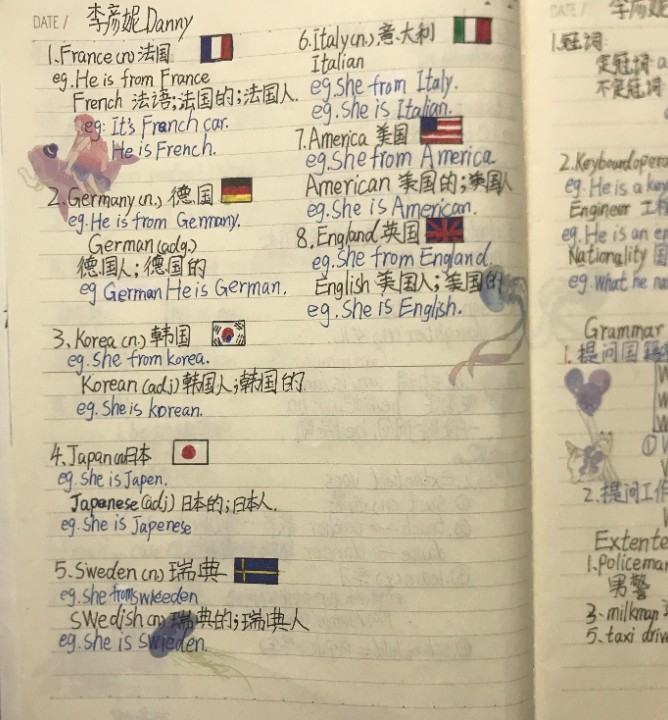 DATE / 李彦妮Danny
1.France(n) 法国
eg.He is from France
French 法语;法国的;法国人.
eg: It's French car.
He is French.
2.Germany(n.) 德国
eg.He is from Germany.
German(adg.)
德国人; 德国的
eg German He is German.
3.Korea(n.) 韩国
eg.She from korea.
Korean (adj) 韩国人;韩国的
eg.She is korean.
4.Japan(n)日本
eg.She is Japen.
Japanese(adj) 日本的;日本人.
eg.She is Japenese
5.Sweden(n) 瑞典
eg.She from sweeden
Swedish(n) 瑞典的;瑞典人
eg.She is Swieden.
6.Italy(n.).意大利
Italian
eg.She from Italy.
eg.She is Italian.
7.America 美国
eg.She from America.
American 美国的;美国人
eg.She is American.
8.England 英国
eg.She from England.
English 美国人;美国的
eg.She is English.
DATE /
1.冠词:
定冠词:
不定冠词
2.Keyboard
eg. He is a
Engineer 工
eg.He is an
Nationality 国
eg.What he
Grammar
1.提问国籍
2.提问工作
1.Policeman
男警
3.milkman
5.taxi